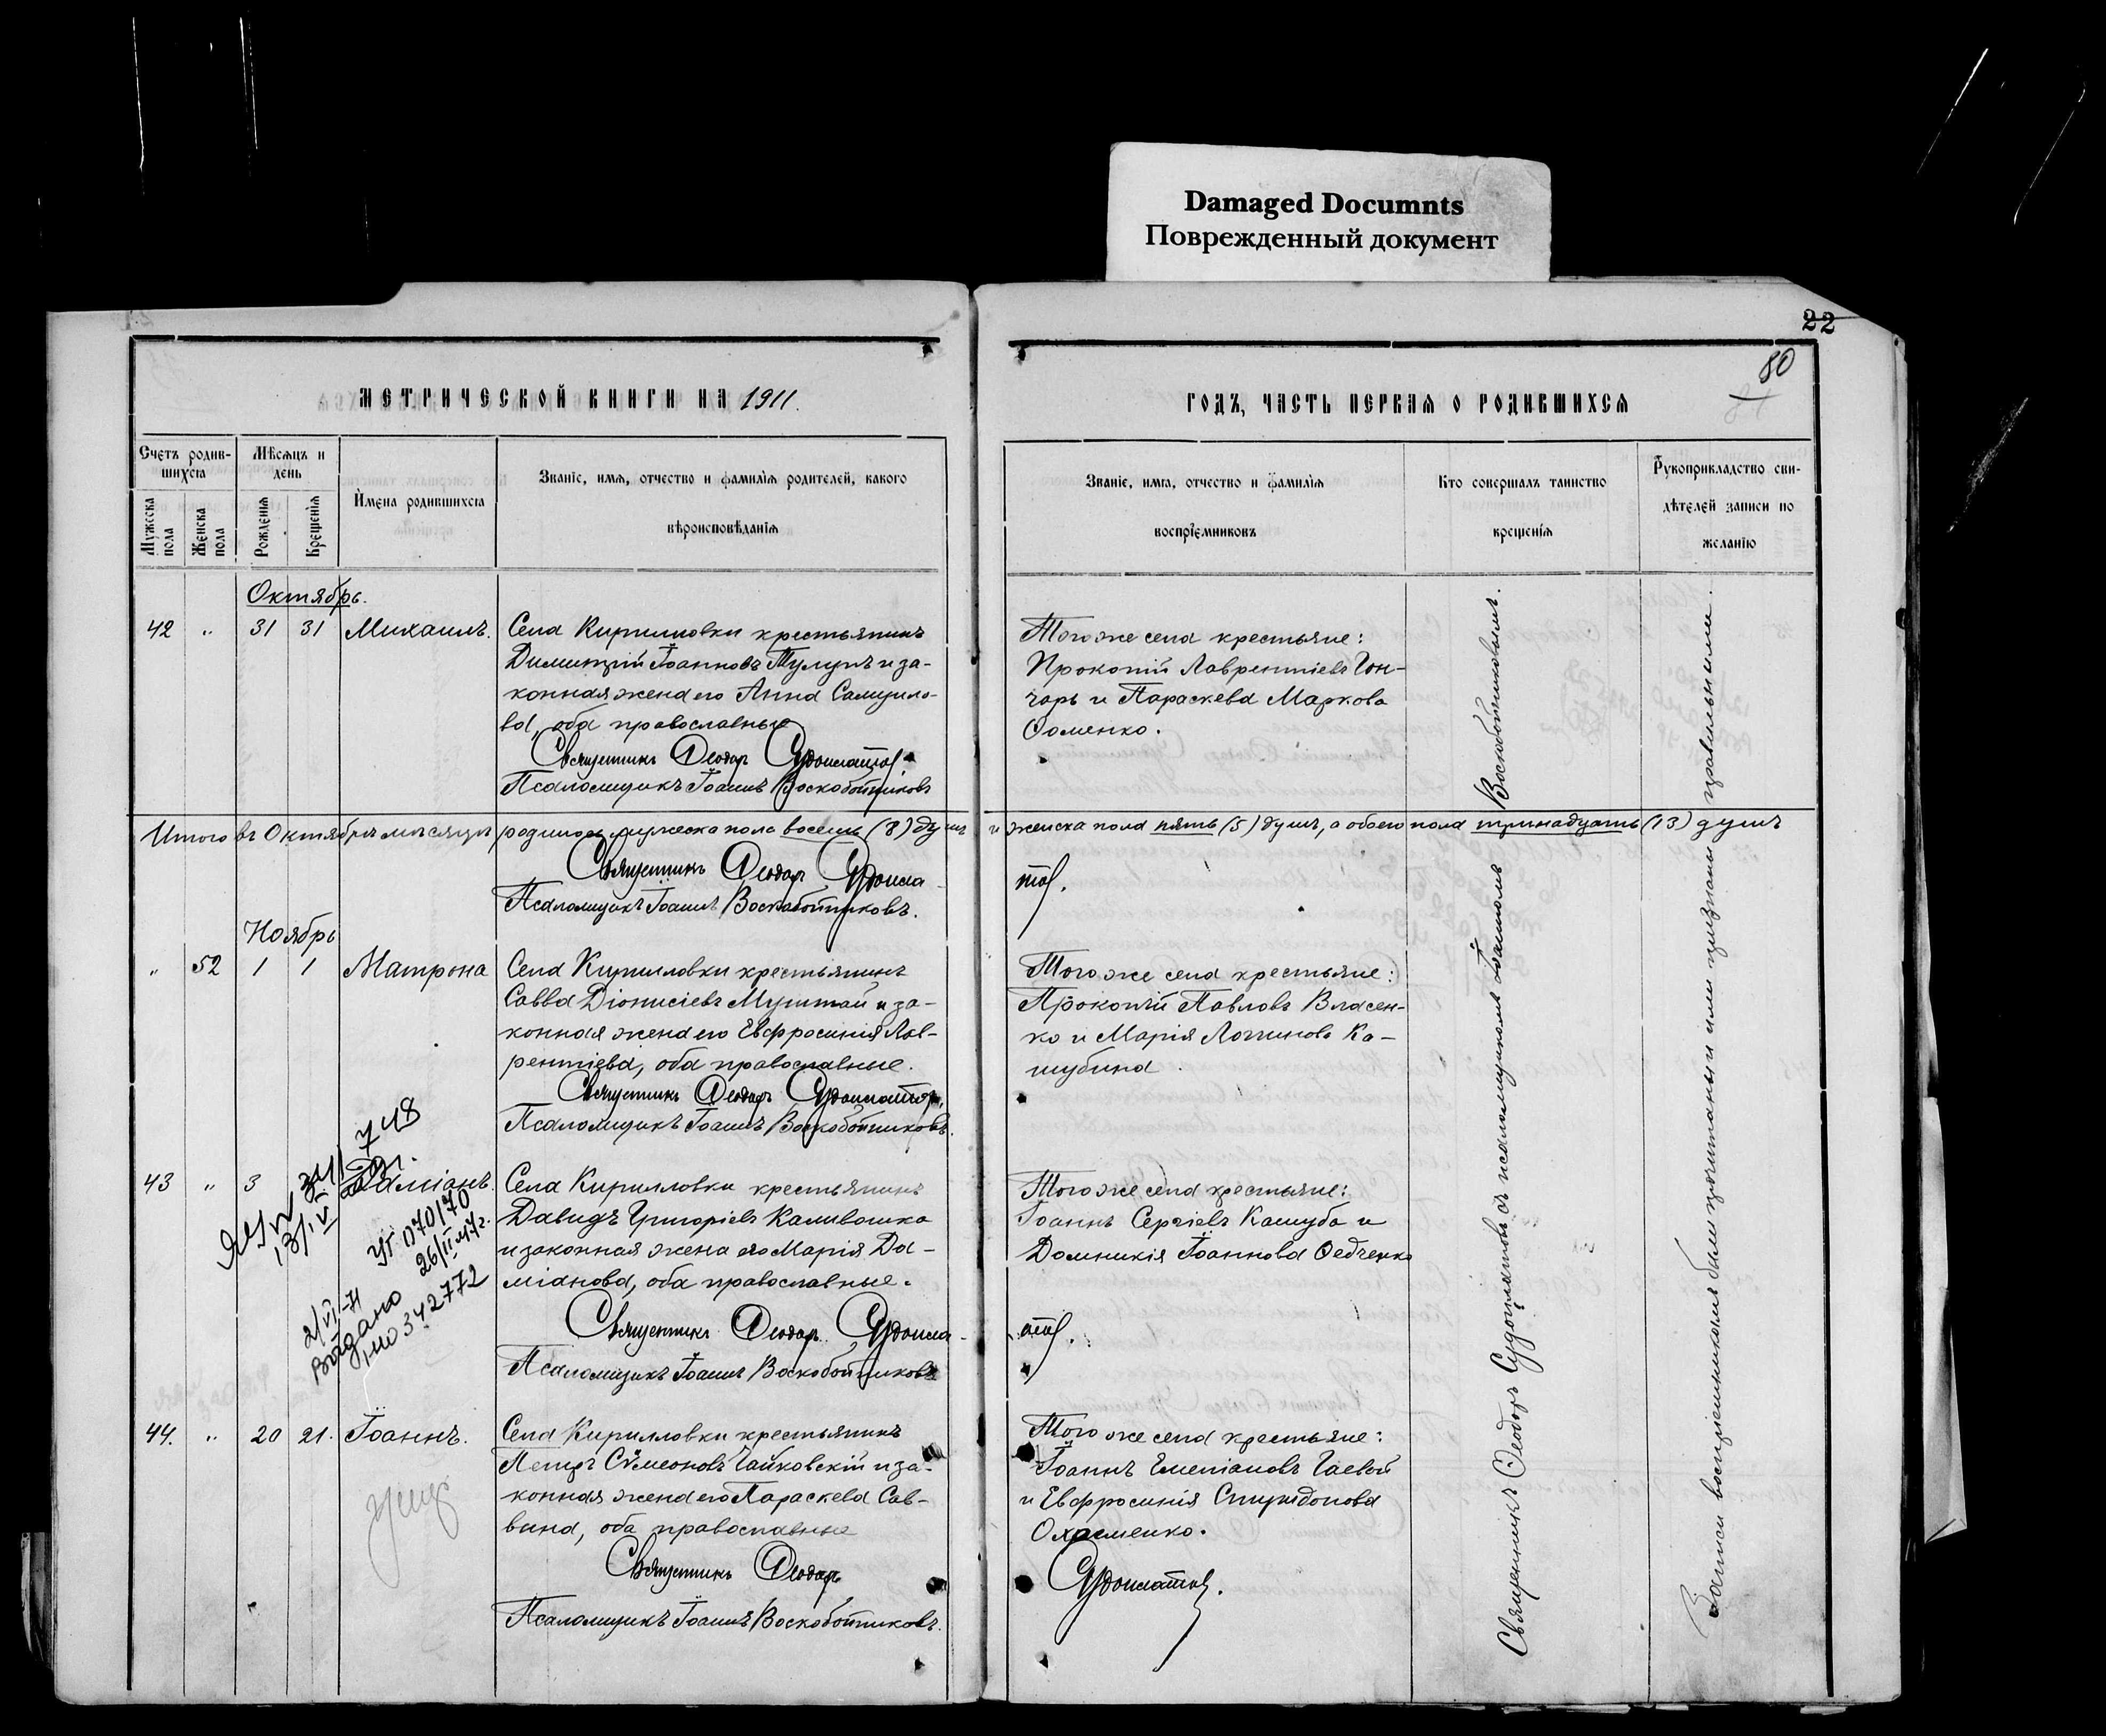 Damaged Documnts
Поврежденный документ
22
80
МЕТРИЧЕСКОЙ КНИГИ НА 1911.
ГОДЪ, ЧАСТЬ ПЕРВАЯ О РОДИВШИХСЯ
Счетъ родив-
шихся
Мужеска
пола
Женска
пола
Мѣсяцъ и
день
Рожденія
Крещенія
Имена родившихся
Званіе, имя, отчество и фамилія родителей, какого
вѣроисповѣданія
Званіе, имя, отчество и фамилія
воспріемниковъ
Кто совершалъ таинство
крещенія
Рукоприкладство сви-
дѣтелей записи по
желанію
Октябрь.
42 " 31 31 Михаилъ.
Села Кирилловки крестьянинъ
Димитрій Іоанновъ Тулупъ и за-
конная жена его Анна Самуило-
ва, оба православные
Священникъ Ѳеодоръ
Псаломщикъ Іоаннъ Воскобойниковъ
Того же села крестьяне:
Прокопій Лаврентіевъ Гон-
чаръ и Параскева Маркова
Ѳоменко.
Итого въ Октябрѣ мѣсяцѣ родилось мужеска пола восемь (8) душъ и женска пола пять (5) душъ, а обоего пола тринадцать (13) душъ
Священникъ Ѳеодоръ
Псаломщикъ Іоаннъ Воскобойниковъ.
Ноябрь
" 52 1 1 Матрона
Села Кирилловки крестьянинъ
Савва Діонисіевъ Мушта́й и за-
конная жена его Евфросинія Лав-
рентіева, оба православные.
Священникъ Ѳеодоръ
Псаломщикъ Іоаннъ Воскобойниковъ.
Того же села крестьяне:
Прокопій Павловъ Власен-
ко и Марія Логгинова Ка-
шубина
43 " 3 Даміанъ.
Села Кирилловки крестьянинъ
Давидъ Григоріевъ Каливошка
и законная жена его Марія Да-
міанова, оба православные.
Священникъ Ѳеодоръ
Псаломщикъ Іоаннъ Воскобойниковъ
Того же села крестьяне:
Іоаннъ Сергіевъ Кашуба и
Домникія Іоаннова Ѳедченко
748
13/IV
070170
26/II 47г.
2/VI-71
Видано
342772
44. " 20 21. Іоаннъ.
Села Кирилловки крестьянинъ
Петръ Сѵмеоновъ Чайковскій и за-
конная жена его Параскева Сав-
вина, оба православные
Священникъ Ѳеодоръ
Псаломщикъ Іоаннъ Воскобойниковъ.
Того же села крестьяне:
Іоаннъ Емеліановъ Гаевой
и Евфросинія Спиридонова
Охраменко.
Священникъ Ѳеодоръ съ псаломщикомъ Іоанномъ Воскобойниковымъ.
Записи воспріемниками были прочитаны и ими признаны правильными.